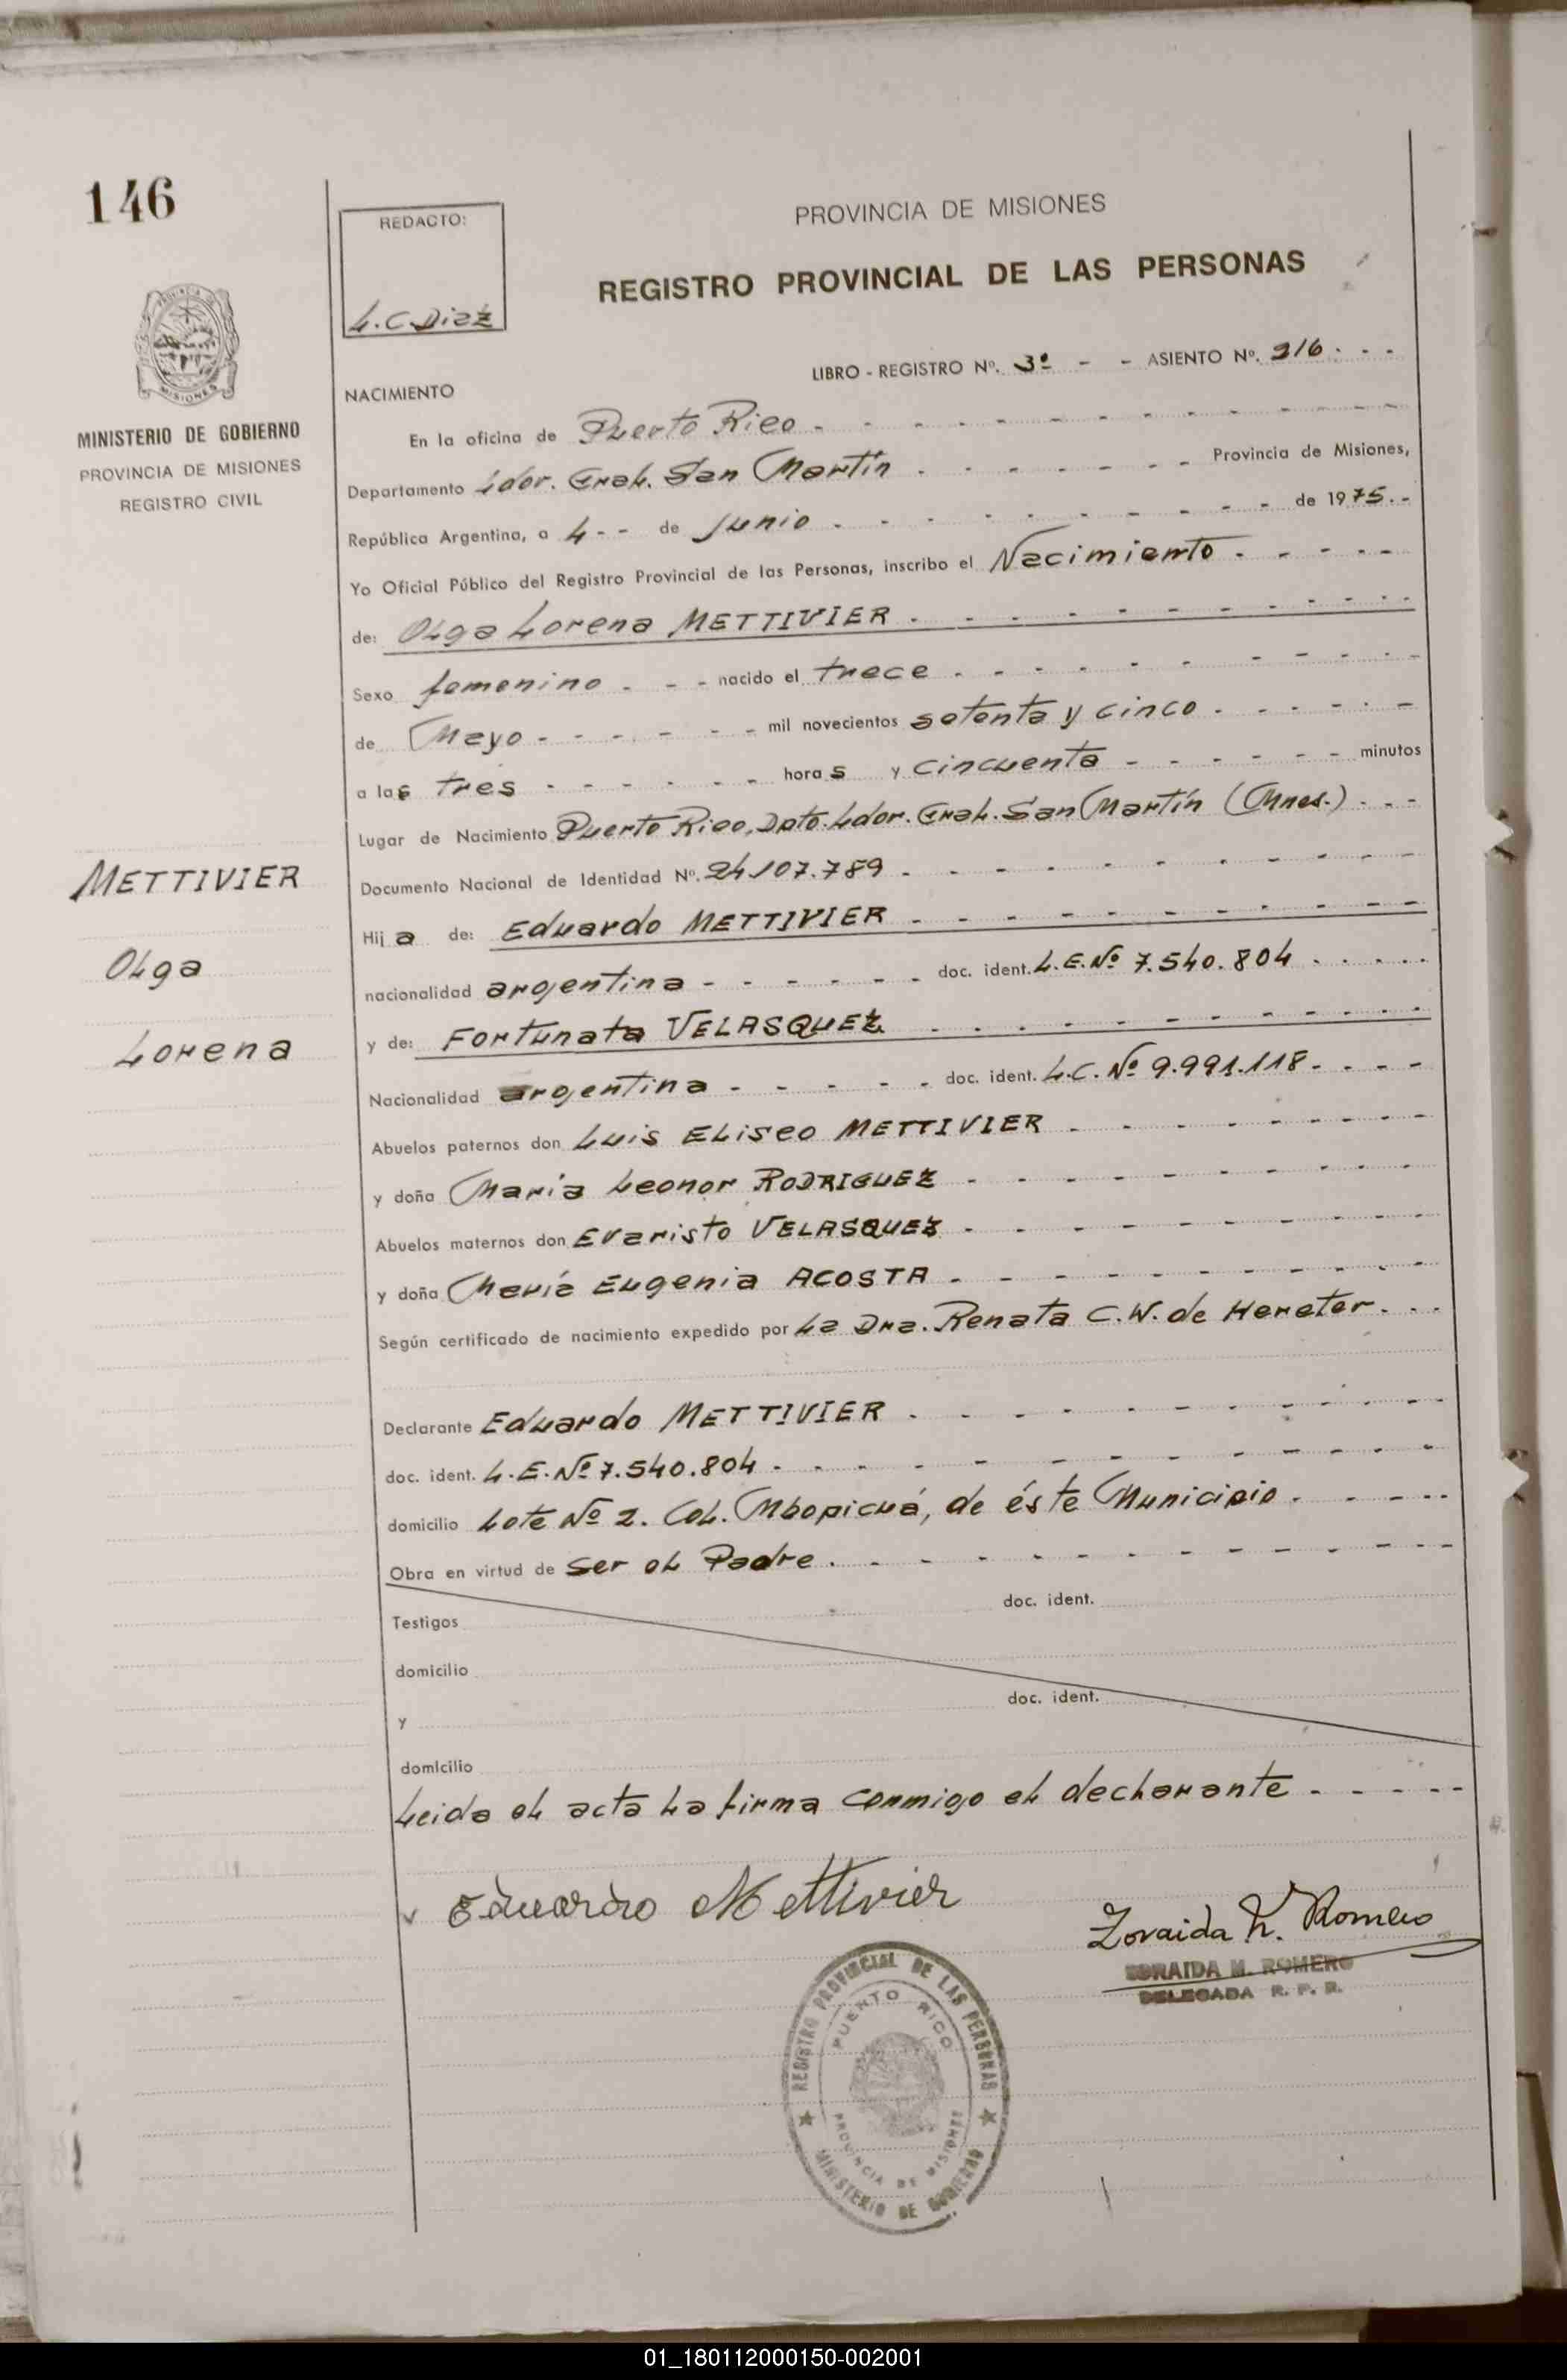 146
REDACTO:
L.C.Diaz
PROVINCIA DE MISIONES
REGISTRO PROVINCIAL DE LAS PERSONAS
MINISTERIO DE GOBIERNO
PROVINCIA DE MISIONES
REGISTRO CIVIL
LIBRO - REGISTRO Nº. 3º - - ASIENTO Nº. 216. - -
NACIMIENTO
En la oficina de Puerto Rico
Departamento Ldor. Gral. San Martín Provincia de Misiones,
República Argentina, a 4 - - de Junio de 1975.-
Yo Oficial Público del Registro Provincial de las Personas, inscribo el Nacimiento
de: Olga Lorena METTIVIER
Sexo femenino - - - nacido el trece
de Mayo mil novecientos setenta y cinco
a las tres horas y cincuenta minutos
Lugar de Nacimiento Puerto Rico, Dpto. Ldor. Gral. San Martín (Mnes.)
Documento Nacional de Identidad Nº. 24.107.789
Hija de: Eduardo METTIVIER
nacionalidad argentina doc. ident. L.E.Nº 7.540.804
y de: Fortunata VELASQUEZ
Nacionalidad argentina doc. ident. L.C. Nº 9.991.118
Abuelos paternos don Luis Eliseo METTIVIER
y doña Maria Leonor RODRIGUEZ
Abuelos maternos don Evaristo VELASQUEZ
y doña María Eugenia ACOSTA
Según certificado de nacimiento expedido por La Dra. Renata C.W. de Hereter.
Declarante Eduardo METTIVIER
doc. ident. L.E.Nº 7.540.804
domicilio Lote Nº 2. Col. Mbopicuá, de éste Municipio
Obra en virtud de ser el Padre
Testigos doc. ident.
domicilio
y doc. ident.
domicilio
Leida el acta la firma conmigo el declarante
METTIVIER
Olga
Lorena
Eduardo Mettivier
Zoraida M. Romero
ZORAIDA M. ROMERO
DELEGADA R. P. P.
REGISTRO PROVINCIAL DE LAS PERSONAS
PUERTO RICO
PROVINCIA DE MISIONES
MINISTERIO DE GOBIERNO
01_180112000150-002001